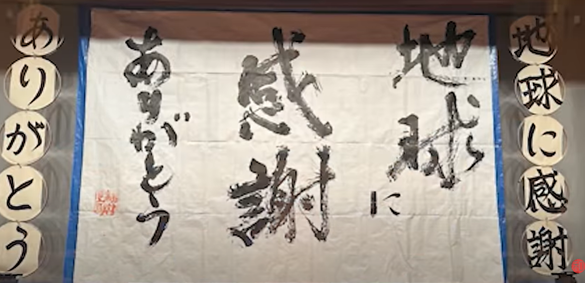 地球に
感謝
ありがとう
地球に感謝
ありがとう